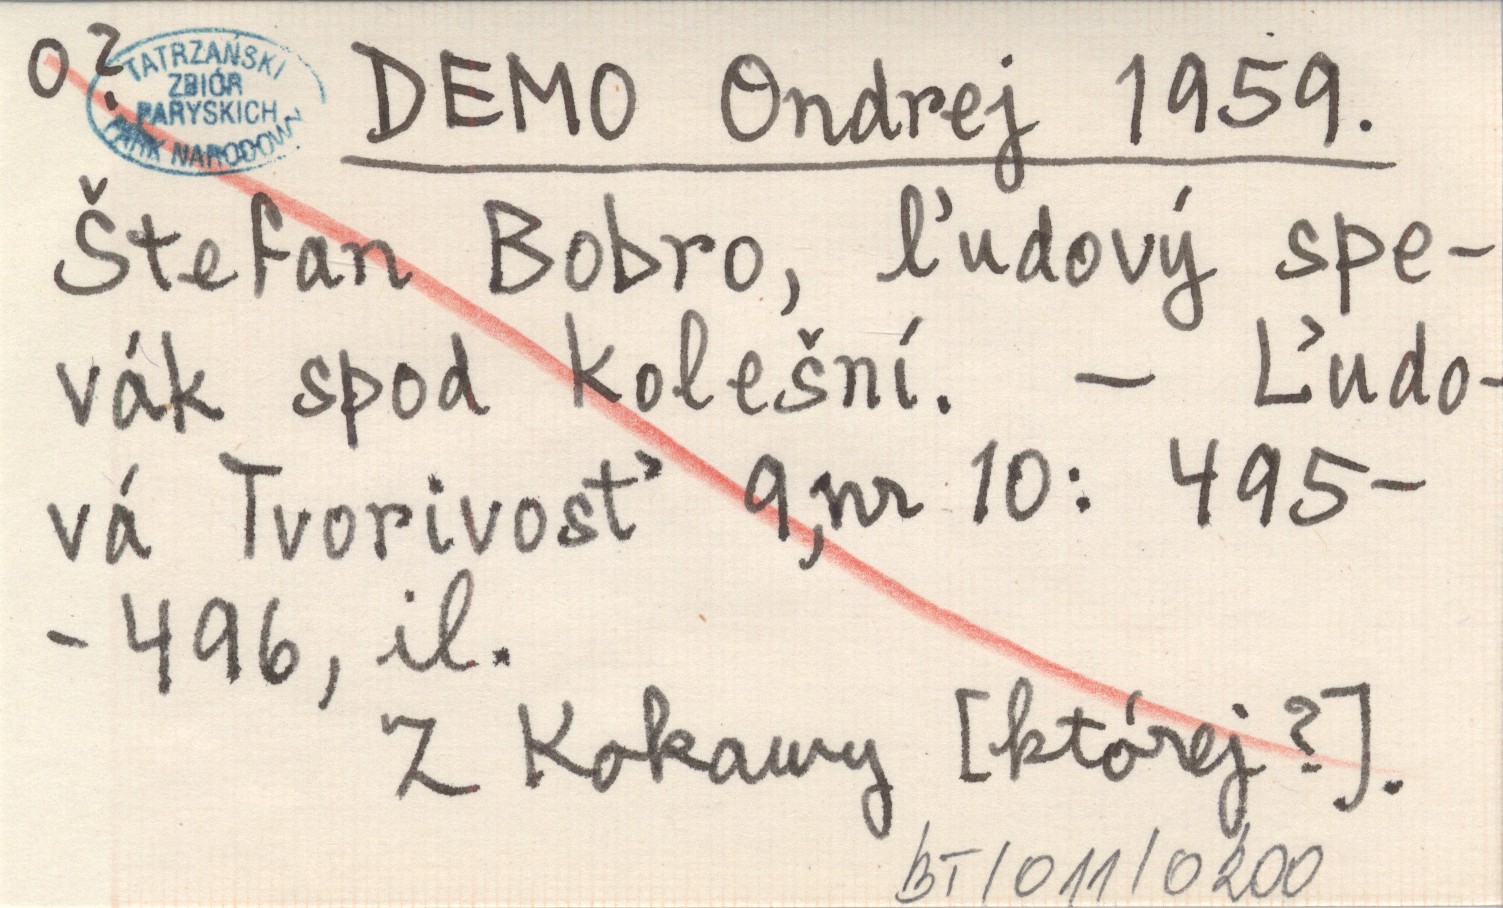 0?
TATRZAŃSKI
ZBIÓR
PARYSKICH
PARK NARODOWY
DEMO Ondrej 1959.
Štefan Bobro, ľudový spe-
vák spod kolešní. - Ľudo-
vá Tvorivosť 9, nr 10: 495-
-496, il.
Z Kokawy [której?].
BT/011/0200